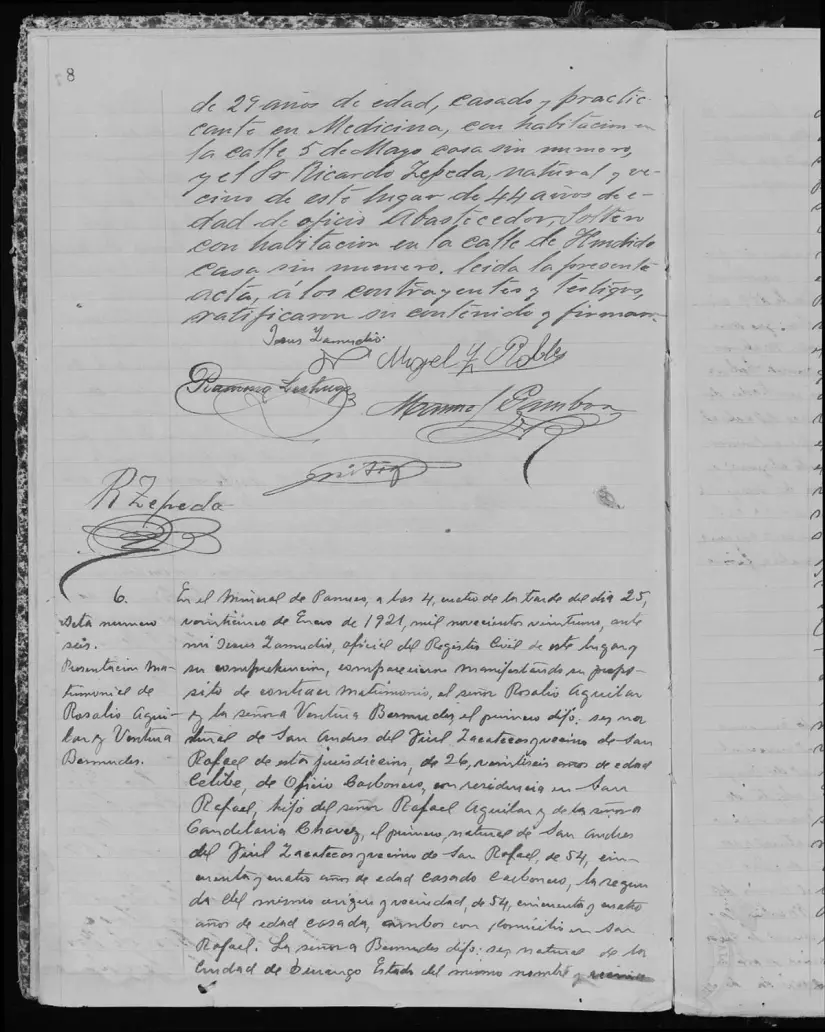 8
de 29 años de edad, casado y practi-
cante en Medicina, con habitacion en
la calle 5 de Mayo casa sin numero,
y el Sr Ricardo Zepeda, natural y ve-
cino de este lugar de 44 años de e-
dad de oficio Abastecedor, Soltero
con habitacion en la calle de
casa sin numero. leida la presente
acta, á los contrayentes y testigos,
ratificaron su contenido y firmaron.
Jesus Zamudio
Miguel Robles
Manuel Gamboa
R Zepeda
6.
Acta numero
seis.
Presentacion Ma-
trimonial de
Rosalio Agui-
lar y Ventura
Bermudes.
En el Mineral de Panuco, a las 4, cuatro de la tarde del dia 25,
veinticinco de Enero de 1921, mil novecientos veintiuno, ante
mi Jesus Zamudio, oficial del Registro Civil de este lugar y
su comprehencion, comparecieron manifestando su propo-
sito de contraer matrimonio, el señor Rosalio Aguilar
y la señora Ventura Bermudes, el primero dijo: ser na
tural de San Andres del Teul Zacatecas y vecino de San
Rafael de esta jurisdiccion, de 26, veintiseis años de edad
Celibe, de Oficio Carbonero, con residencia en San
Rafael, hijo del señor Rafael Aguilar y de la señora
Candelaria Chavez, el primero, natural de San Andres
del Teul Zacatecas y vecino de San Rafael, de 54, cin-
cuenta y cuatro años de edad casado Carbonero, la segun
da del mismo origen y vecindad, de 54, cincuenta y cuatro
años de edad casada, ambos con domicilio en San
Rafael. La señora Bermudes dijo: ser natural de la
Ciudad de Durango Estado del mismo nombre y